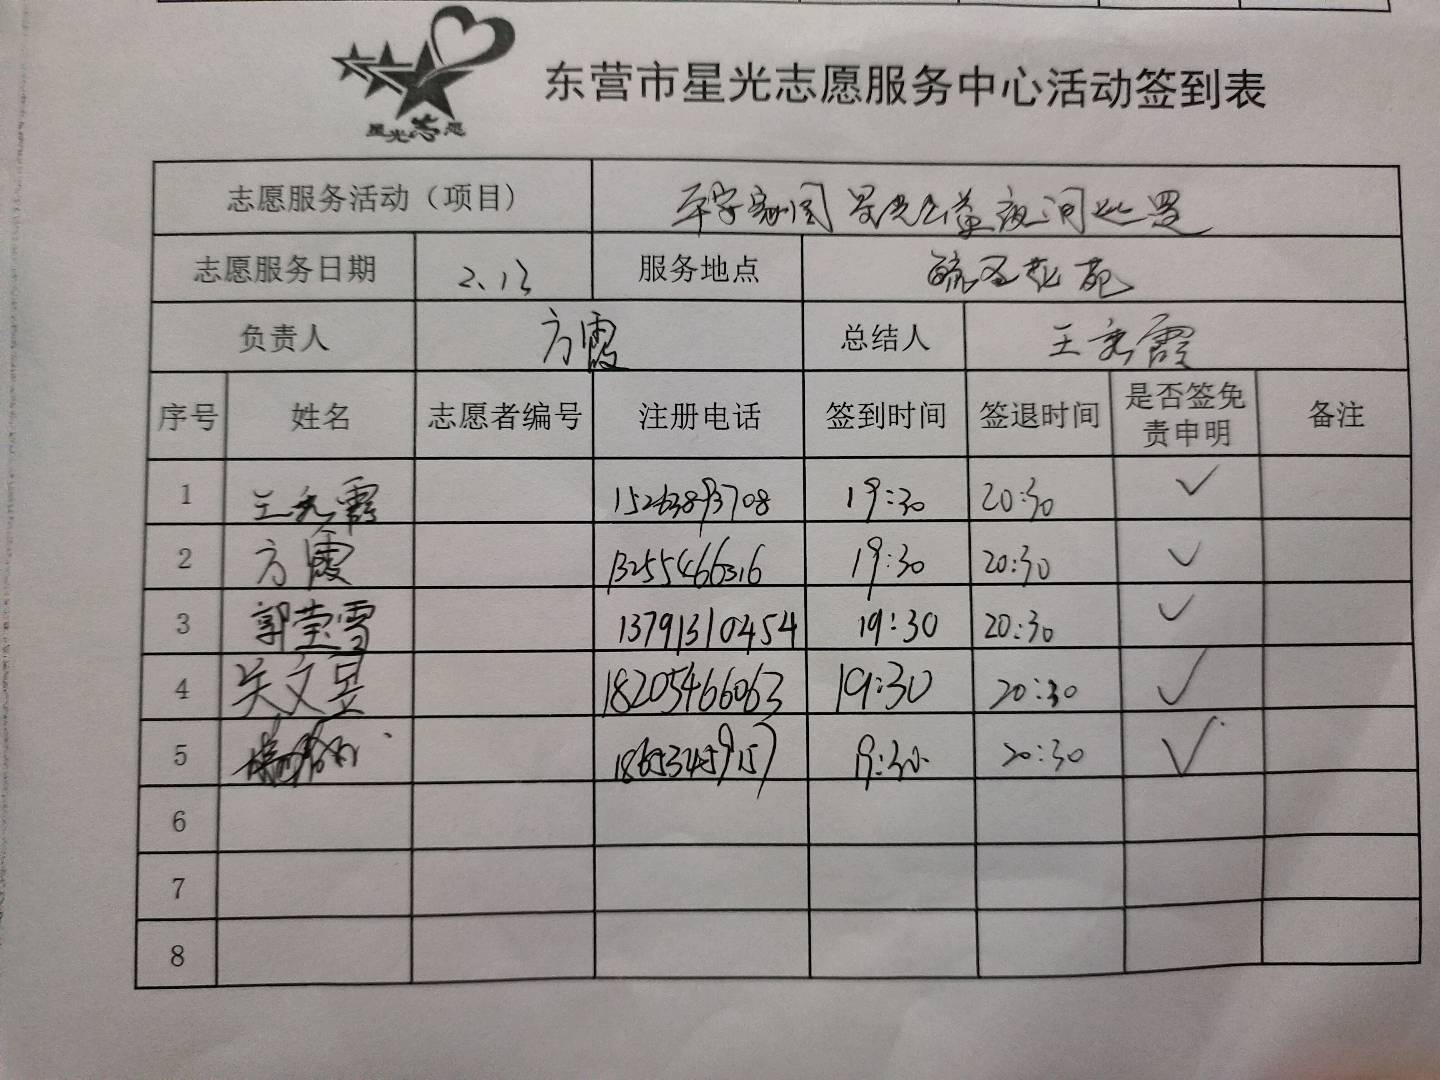 星光志愿
东营市星光志愿服务中心活动签到表
志愿服务活动（项目） 平安家园 星光公益夜间巡逻
志愿服务日期 2.13 服务地点 花苑
负责人 方霞 总结人 王秀霞
序号 姓名 志愿者编号 注册电话 签到时间 签退时间 是否签免责申明 备注
1 王秀霞 15263893708 19:30 20:30 ✓
2 方霞 13255466316 19:30 20:30 ✓
3 郭莹雪 13791310454 19:30 20:30 ✓
4 吴文昱 18205466063 19:30 20:30 ✓
5 18653459157 19:30 20:30 ✓
6
7
8